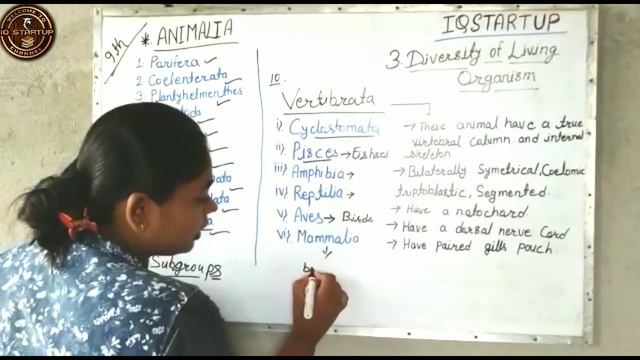 WELCOME TO
IQ STARTUP
CHANNEL
9th
* ANIMALIA
IQSTARTUP
3. Diversity of Living
Organism
1 Parifera ✓
2 Coelenterata ✓
3 Plantyhelmenthes ✓
10.
Vertibrata
i). Cyclostomata
ii). Pisces → Fishes
iii). Amphibia →
iv). Reptilia →
v). Aves → Birds
vi). Mammalia
Subgroups
→ These animal have a true
virtebral calumn and internal
skeleton.
→ Bilaterally Symetrical, Coelomic
triptoblastic, Segmented.
→ Have a natochard
→ Have a darsal nerve Card
→ Have paired gills pouch.